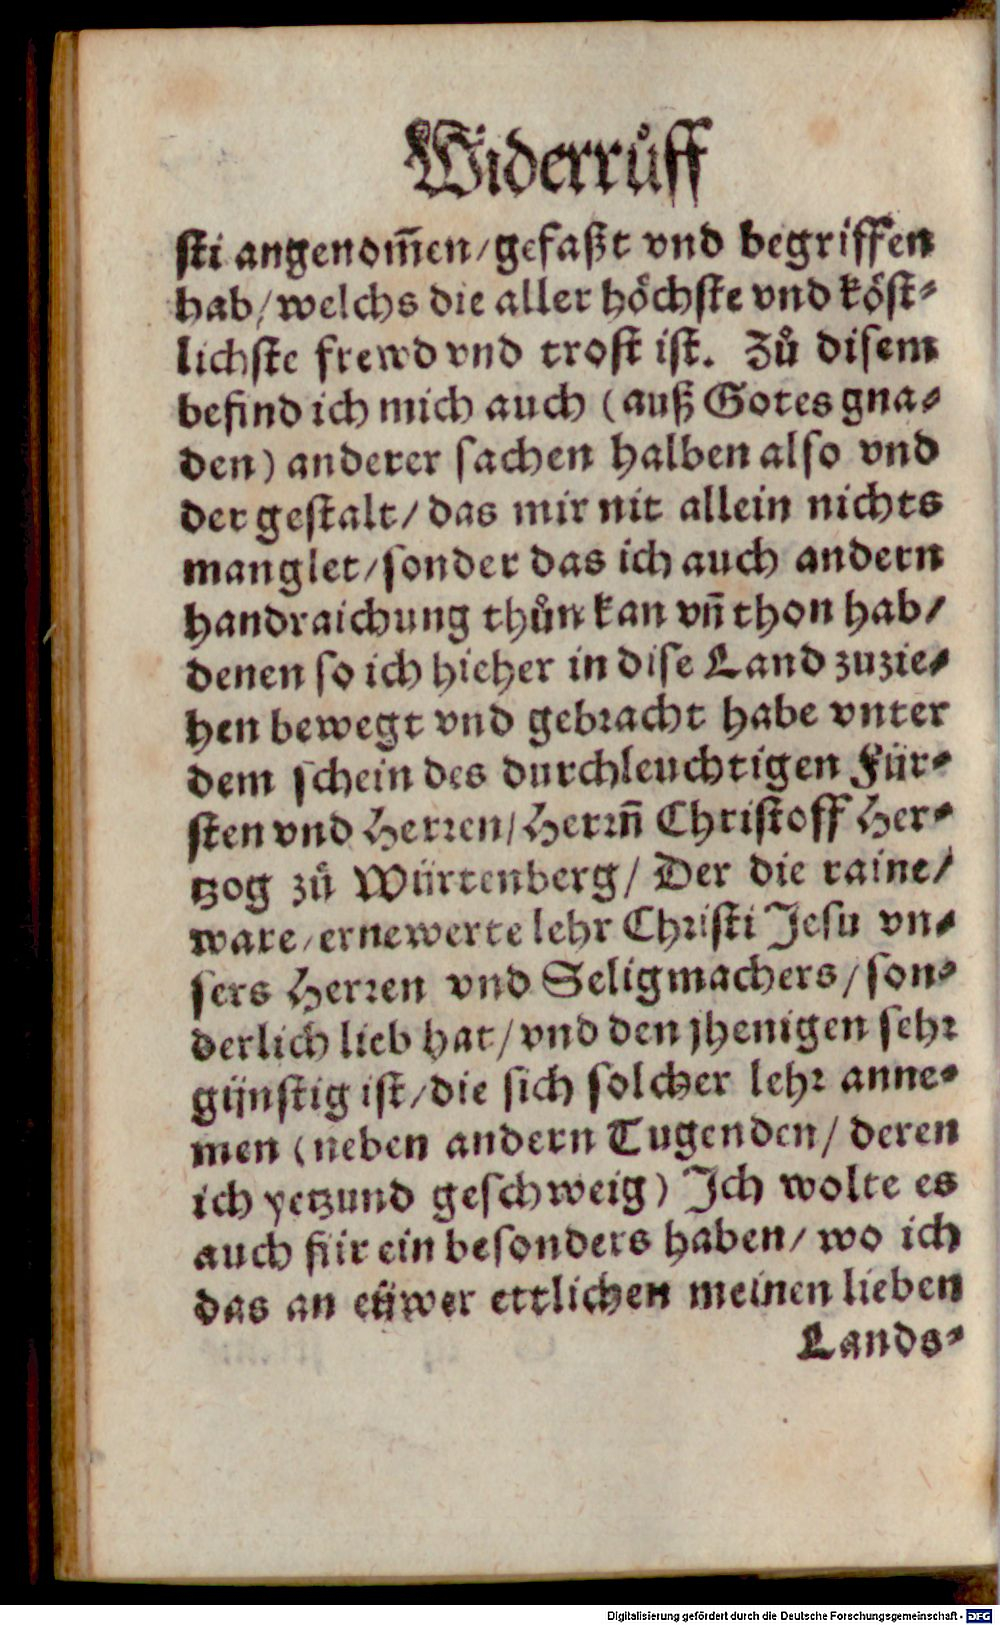 Widerrůff
sti angenom̃en/gefaßt vnd begriffen
hab/welchs die aller höchste vnd köst-
lichste frewd vnd trost ist. Zů disem
befind ich mich auch (auß Gotes gna-
den) anderer sachen halben also vnd
der gestalt/das mir nit allein nichts
manglet/sonder das ich auch andern
handraichung thůn kan vn̄ thon hab/
denen so ich hieher in dise Land zuzie-
hen bewegt vnd gebracht habe vnter
dem schein des durchleuchtigen Für-
sten vnd Herren/Herrn̄ Christoff Her-
tzog zů Würtenberg/Der die raine/
ware/ernewerte lehr Christi Jesu vn-
sers Herren vnd Seligmachers/son-
derlich lieb hat/vnd den jhenigen sehr
günstig ist/die sich solcher lehr anne-
men (neben andern Tugenden/deren
ich yetzund geschweig) Jch wolte es
auch für ein besonders haben/wo ich
das an eüwer ettlichen meinen lieben
Lands-
Digitalisierung gefördert durch die Deutsche Forschungsgemeinschaft - DFG